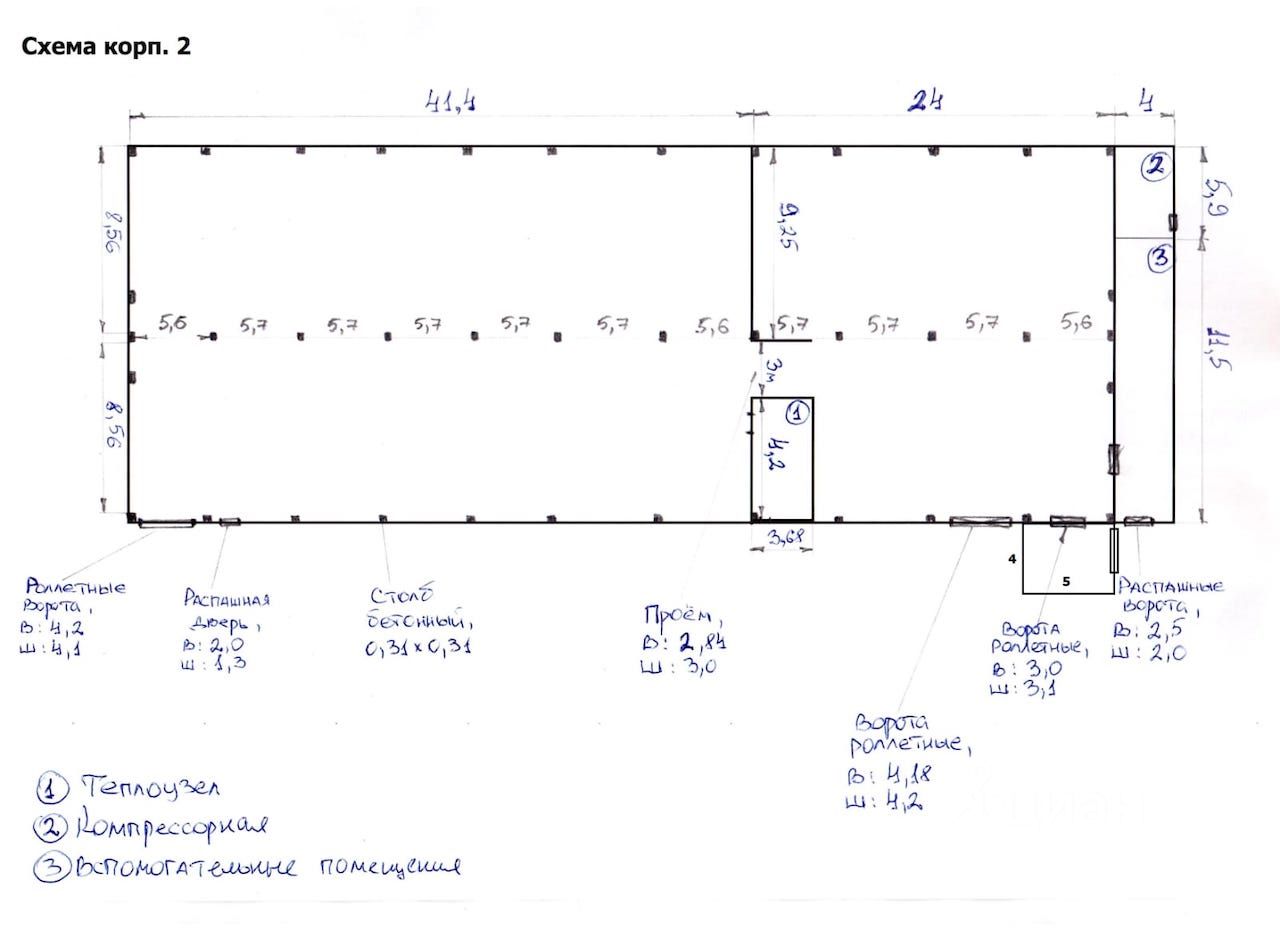 Схема корп. 2
41,4
24
4
2
5,9
8,56
9,25
3
5,6
5,7
5,7
5,7
5,7
5,7
5,6
5,7
5,7
5,7
5,6
11,5
3м
8,56
1
4,2
3,68
4
5
Роллетные
ворота,
В: 4,2
Ш: 4,1
Распашная
дверь,
В: 2,0
Ш: 1,3
Столб
бетонный,
0,31 х 0,31
Проём,
В: 2,84
Ш: 3,0
Ворота
роллетные,
В: 4,18
Ш: 4,2
Ворота
роллетные,
В: 3,0
Ш: 3,1
Распашные
ворота,
В: 2,5
Ш: 2,0
1 Теплоузел
2 Компрессорная
3 Вспомогательные помещения